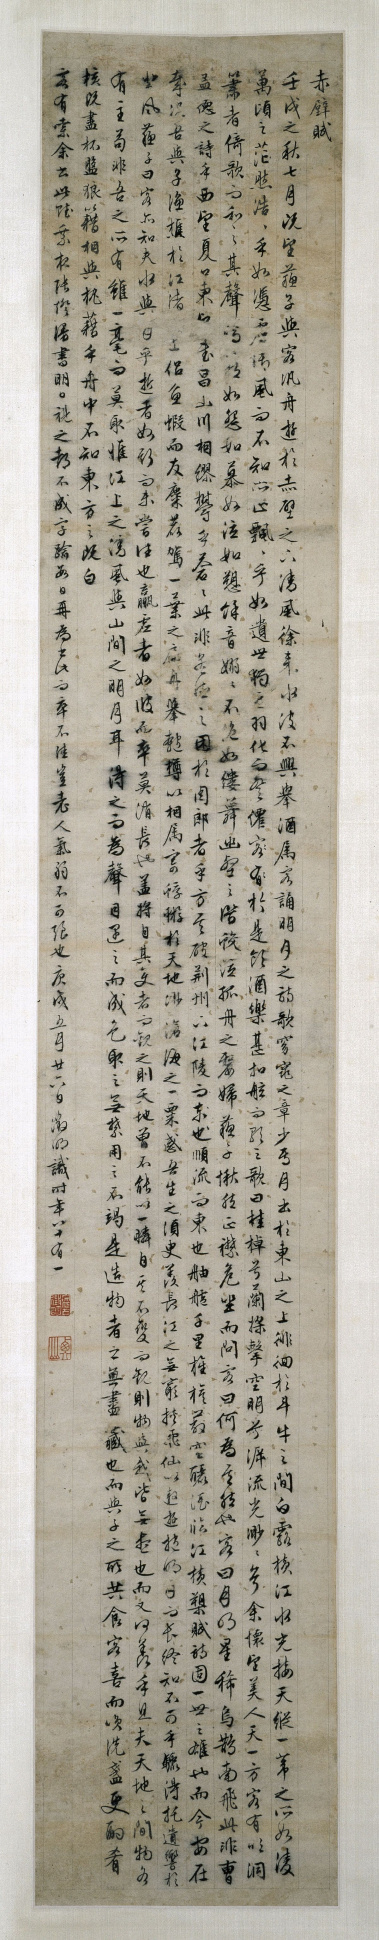 赤壁賦
壬戌之秋七月既望蘇子與客汎舟遊於赤壁之下清風徐來水波不興舉酒屬客誦明月之詩歌窈窕之章少焉月出於東山之上徘徊於斗牛之間白露橫江水光接天縱一葦之所如凌
萬頃之茫然浩浩乎如憑虛御風而不知所止飄飄乎如遺世獨立羽化而登僊於是飲酒樂甚扣舷而歌之歌曰桂棹兮蘭槳擊空明兮泝流光渺渺兮余懷望美人天一方客有吹洞
簫者倚歌而和之其聲嗚嗚然如怨如慕如泣如愬餘音嫋嫋不絕如縷舞幽壑之潛蛟泣孤舟之嫠婦蘇子愀然正襟危坐而問客曰何為其然也客曰月明星稀烏鵲南飛此非曹
孟德之詩乎西望夏口東望武昌山川相繆鬱乎蒼蒼此非孟德之困於周郎者乎方其破荊州下江陵而東也順流而東也舳艫千里旌旗蔽空釃酒臨江橫槊賦詩固一世之雄也而今安在
哉況吾與子漁樵於江渚之上侶魚蝦而友麋鹿駕一葉之扁舟舉匏樽以相屬寄蜉蝣於天地渺滄海之一粟哀吾生之須臾羨長江之無窮挾飛仙以遨遊抱明月而長終知不可乎驟得托遺響於
悲風蘇子曰客亦知夫水與月乎逝者如斯而未嘗往也贏虛者如彼而卒莫消長也蓋將自其變者而觀之則天地曾不能以一瞬自其不變者而觀之則物與我皆無盡也而又何羨乎且夫天地之間物各
有主苟非吾之所有雖一毫而莫取惟江上之清風與山間之明月耳得之而為聲目遇之而成色取之無禁用之不竭是造物者之無盡藏也而與子之所共食客喜而笑洗盞更酌肴
核既盡杯盤狼籍相與枕藉乎舟中不知東方之既白
客有索余書此賦於燈下書明日視之都不成字嘉靖庚戌五月廿六日徵明識時年八十有一